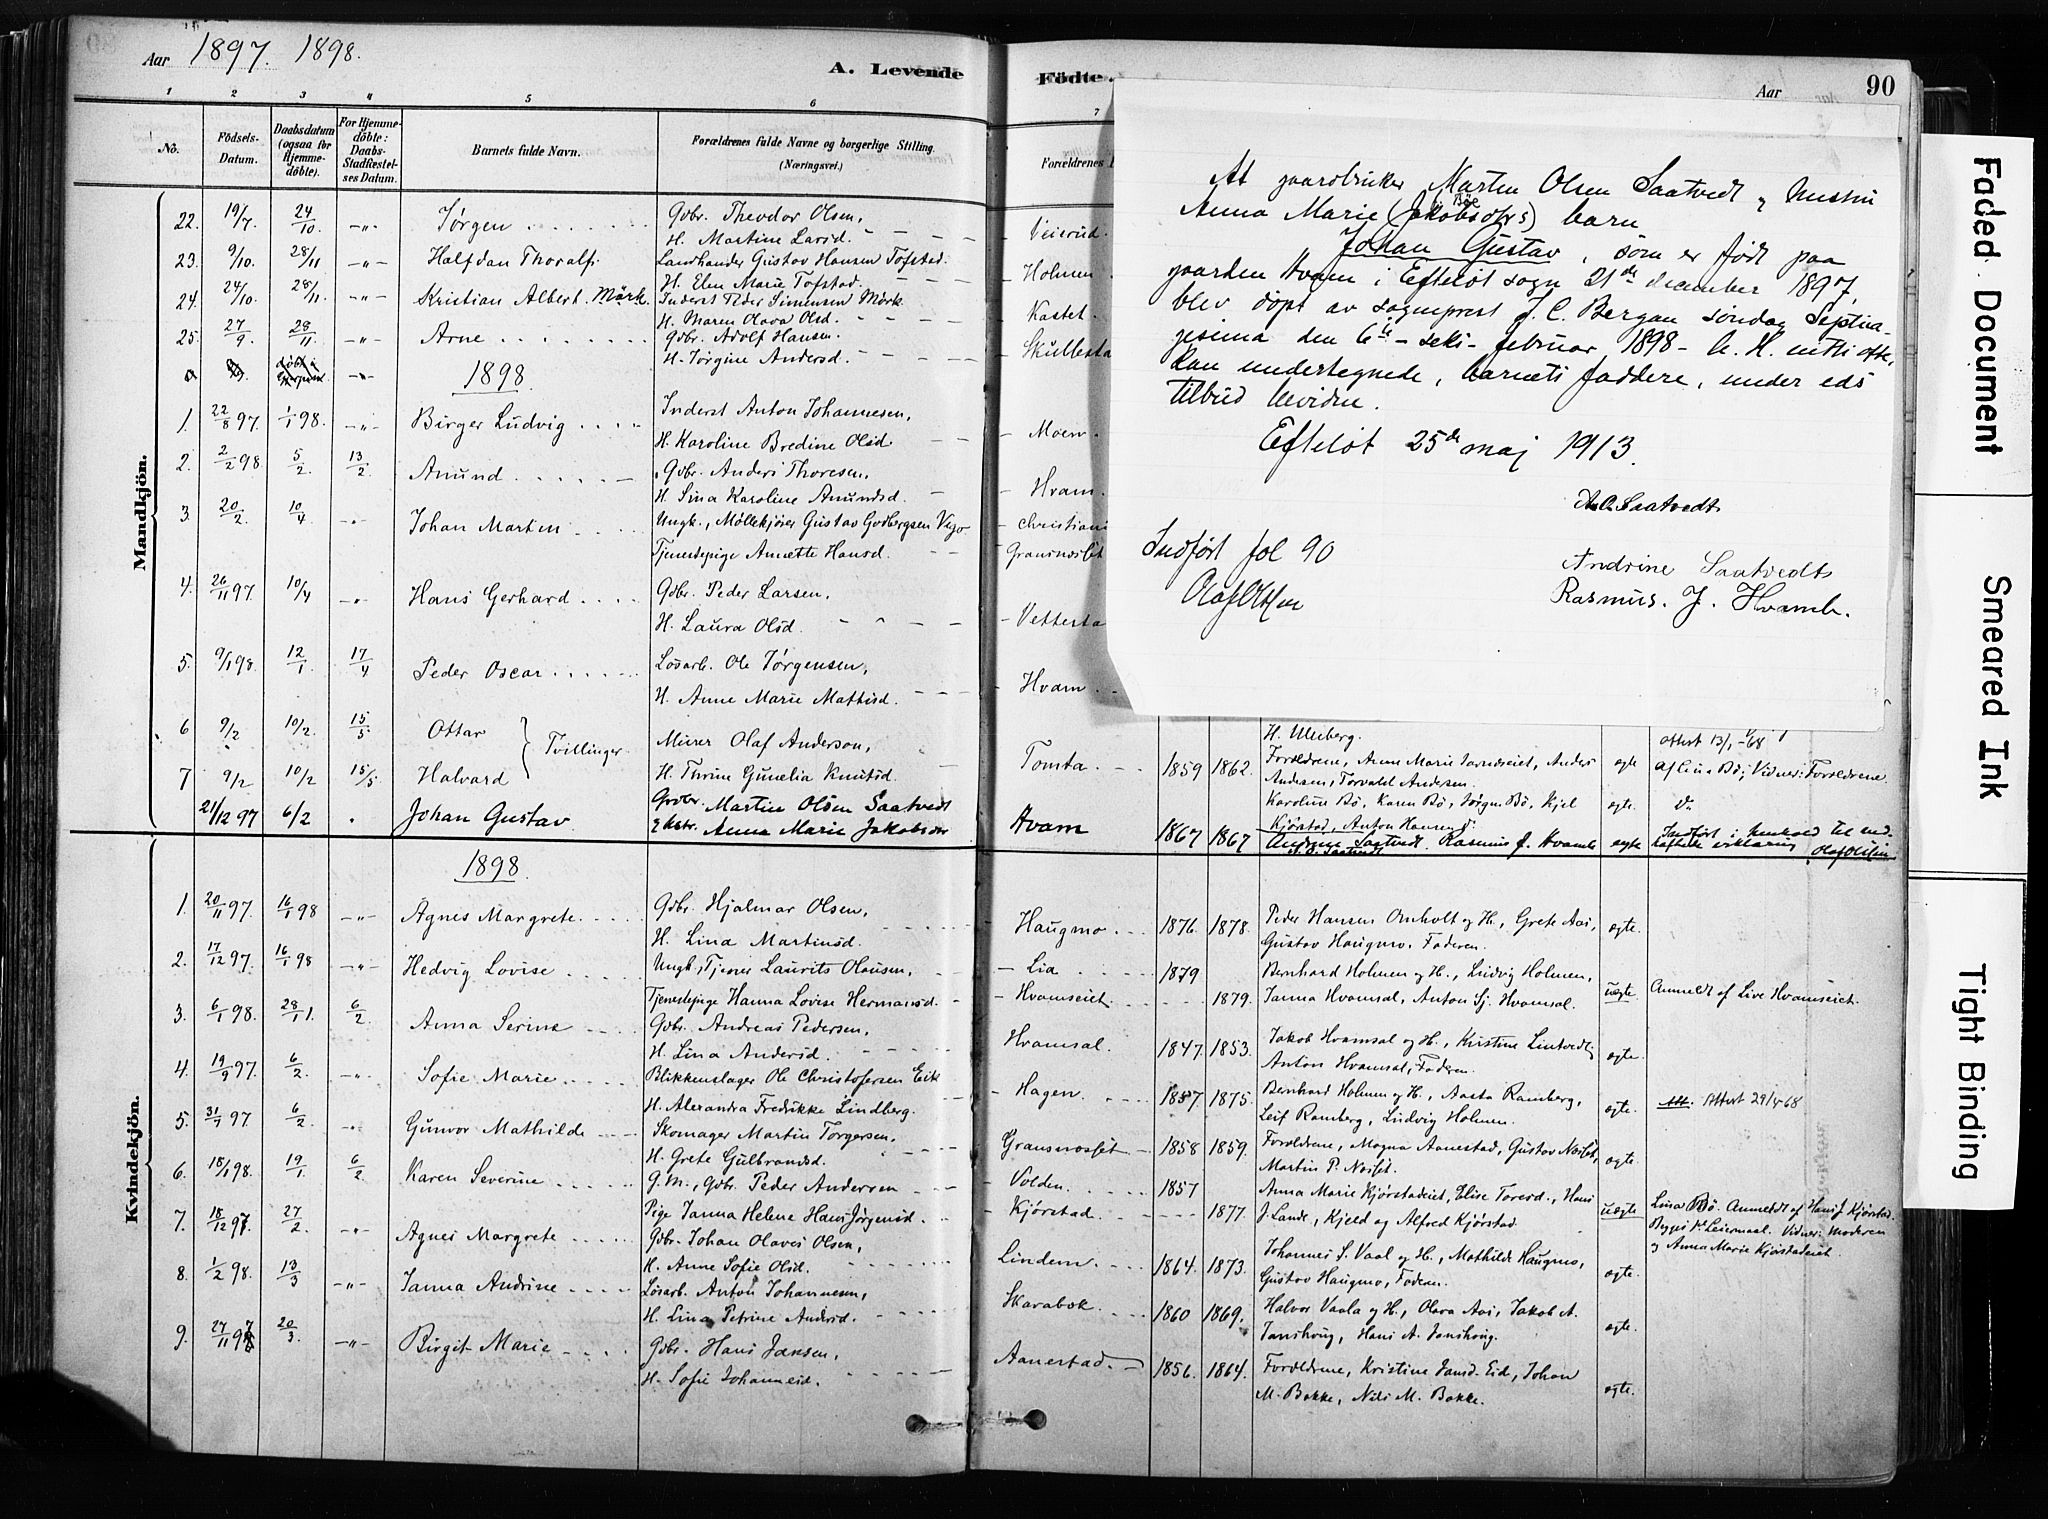 Aar 1897. 1898.
A. Levende
Födte.
Aar
90
1 2 3 4 5 6 7
No.
Födsels-Datum.
Daabsdatum (ogsaa for Hjemme-döbte).
For Hjemme-döbte: Daabs-Stadfæstelses Datum.
Barnets fulde Navn.
Forældrenes fulde Navne og borgerlige Stilling. (Næringsvei.)
Forældrenes
Mandkjön.
22. 19/7 24/10 -"- Jørgen Gdbr. Theodor Olsen,
H. Martine Larsd. Veierud
23. 9/10. 28/11 -"- Halfdan Thoralf. Landhandler Gustav Hansen Tofstad.
H. Elen Marie Tofstad. Holmen
24. 24/10. 28/11 -"- Kristian Albert Mørk. Inderst Peder Simensen Mørk.
H. Maren Olava Olsd. Kastet
25. 27/9. 28/11 -"- Arne Gdbr. Adolf Hansen.
H. Jørgine Andersd. Skullesta
1898.
1. 22/8 97. 1/1 98. -"- Birger Ludvig Inderst Anton Johannesen,
H. Karoline Bredine Olsd Moen
2. 2/2 98. 5/2 13/2 Amund Gdbr. Anders Thoresen,
H. Sina Karoline Amundsd. Hvam
3. 20/2 10/4 Johan Martin Ungk., Møllekjører Gustav Godbergsen Vego Christiani
Tjenestepige Anette Hansd. Gransnosset
4. 26/11 97. 10/4 -"- Hans Gerhard Gdbr. Peder Larsen,
H. Laura Olsd. Vettersta
5. 9/1 98. 12/1 17/4 Peder Oscar Løsarb. Ole Jørgensen,
H. Anne Marie Mathisd. Hvam
6 9/2 10/2. 15/5 Ottar Tvillinger Murer Olaf Anderson,
7 9/2 10/2 15/5 Halvard H. Thrine Gunelia Knutsd. Tomta
21/12 97 6/2 Johan Gustav Grdbr. Martin Olsen Saatvedt
Anna Marie Jakobsdr Hvam
At gaardbruker Marten Olsen Saatvedt og hustru
Bøe
Anna Marie (Jakobsdrs) barn
Johan Gustav, som er født paa
gaarden Hvam i Efteløt sogn 21de december 1897,
blev døpt av sogneprest J. C. Bergan søndag Septua-
gesima den 6te - seks - februar 1898 - A. H. nitti otte,
kan undertegnede, barnets faddere, under eds
tilbud bevidne.
Efteløt 25de maj 1913.
A. O. Saatvedt
Andrine Saatvedt
Rasmus. J. Hvamb.
Indført fol 90
Olaf Olsen
H. Ulleberg.
Attest 13/1-68
1859 1862. Forældrene, Anne Marie Jarandseiet, Anders
Andersen, Torvald Andersen. ægte
Af Lina Bø; Vidner: Forældrene
Karoline Bø, Karen Bø, Jørgen Bø, Kjel
Kjørstad, Anton Hansen ægte. do
1867 1867 Andrine Saatvedt. Rasmus J. Hvamb
A. O. Saatvedt ægte Indført i henhold til ved-
heftede erklæring Olaf Olsen
Kvindekjön.
1898.
1. 20/11 97. 16/1 98 -"- Agnes Margrete Gdbr. Hjalmar Olsen,
H. Lina Martinsd. Haugmo 1876. 1878. Peder Hansen Omholt og H., Grete Aas,
Gustav Haugmo, Faderen. ægte.
2. 17/12 97. 16/1 98 -"- Hedvig Lovise Ungk., Tjener Laurits Olausen, Lia 1879 Bernhard Holmen og H., Ludvig Holmen,
Tjenestepige Hanna Lovise Hermansd. Hvamseiet 1879. Janna Hvamsal, Anton Sj. Hvamsal. uægte Anmeldt af Live Hvamseiet.
3. 6/1 98. 28/1. 6/2 Anna Serine Gdbr. Andreas Pedersen,
H. Lina Andersd. Hvamsal. 1847. 1853. Jakob Hvamsal og H., Kristine Lintvedt,
Anton Hvamsal, Faderen. ægte.
4. 19/9 97. 6/2 -"- Sofie Marie Blikkenslager Ole Christofersen Eik
H. Alexandra Fredrikke Lindberg. Hagen. 1857. 1875. Bernhard Holmen og H., Aasta Ramberg,
Leif Ramberg, Ludvig Holmen. ægte. Attest 29/4 68
5. 31/7 97. 6/2 Gunvor Mathilde Skomager Martin Torgersen,
H. Grete Gulbrandsd. Gransnosset 1858 1859. Forældrene, Magna Aanestad, Gustav Nosset,
Martin P. Nosset. ægte.
6. 18/1 98. 19/1 6/2 Karen Severine G. M., Gdbr. Peder Andersen Volden. 1857 Anna Marie Kjørstadeiet, Elise Toresd., Hans
Pige Janna Helene Hans Jørgensd. Kjørstad. 1877. J. Lande, Kjeld og Alfred Kjørstad uægte
Lina Bø. Anmeldt af Hans J. Kjørstad.
Leiermaal. Vidner: Moderen
og Anna Marie Kjørstadeiet.
7. 18/12 97. 27/2 Agnes Margrete Gdbr. Johan Olaves Olsen,
H. Anne Sofie Olsd. Lindem. 1864. 1873. Johannes S. Vaal og H., Mathilde Haugmo,
Gustav Haugmo, Faderen. ægte.
8. 1/2 98. 13/3 -"- Janna Andrine Løsarb. Anton Johannesen,
H. Lina Petrine Andersd. Skarabok. 1860 1869. Halvor Vaala og H., Olava Aas, Jakob A.
Janshøug, Hans A. Janshøug. ægte.
9. 27/11 97 20/3 -"- Birgit Marie Gdbr. Hans Jansen,
H. Sofie Johannesd. Aanestad. 1856. 1864. Forældrene, Kristine Jansd. Eid, Johan
M. Bakke, Nils M. Bakke. ægte.
Faded Document
Smeared Ink
Tight Binding